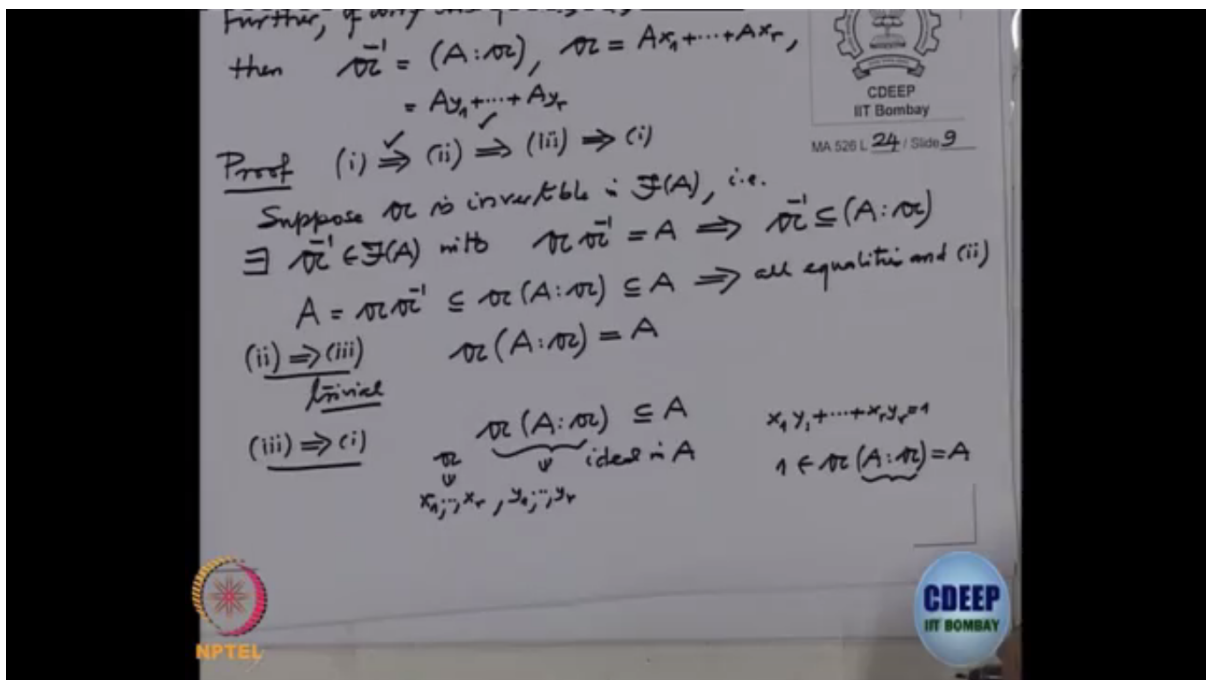 Further, if
then 𝔞⁻¹ = (A:𝔞), 𝔞 = Ax₁+⋯+Axᵣ,
= Ay₁+⋯+Ayᵣ
CDEEP
IIT Bombay
MA 526 L 24 / Slide 9
Proof (i) ⇒ ✓ (ii) ⇒ ✓ (iii) ⇒ (i)
Suppose 𝔞 is invertible in 𝓕(A), i.e.
∃ 𝔞⁻¹ ∈ 𝓕(A) with 𝔞𝔞⁻¹ = A ⟹ 𝔞⁻¹ ⊆ (A:𝔞)
A = 𝔞𝔞⁻¹ ⊆ 𝔞(A:𝔞) ⊆ A ⟹ all equalities and (ii)
(ii) ⇒ (iii) 𝔞(A:𝔞) = A
trivial
(iii) ⇒ (i) 𝔞(A:𝔞) ⊆ A x₁y₁+⋯+xᵣyᵣ=1
𝔞 ideal in A 1 ∈ 𝔞(A:𝔞)=A
x₁,⋯,xᵣ , y₁,⋯,yᵣ
NPTEL
CDEEP
IIT BOMBAY